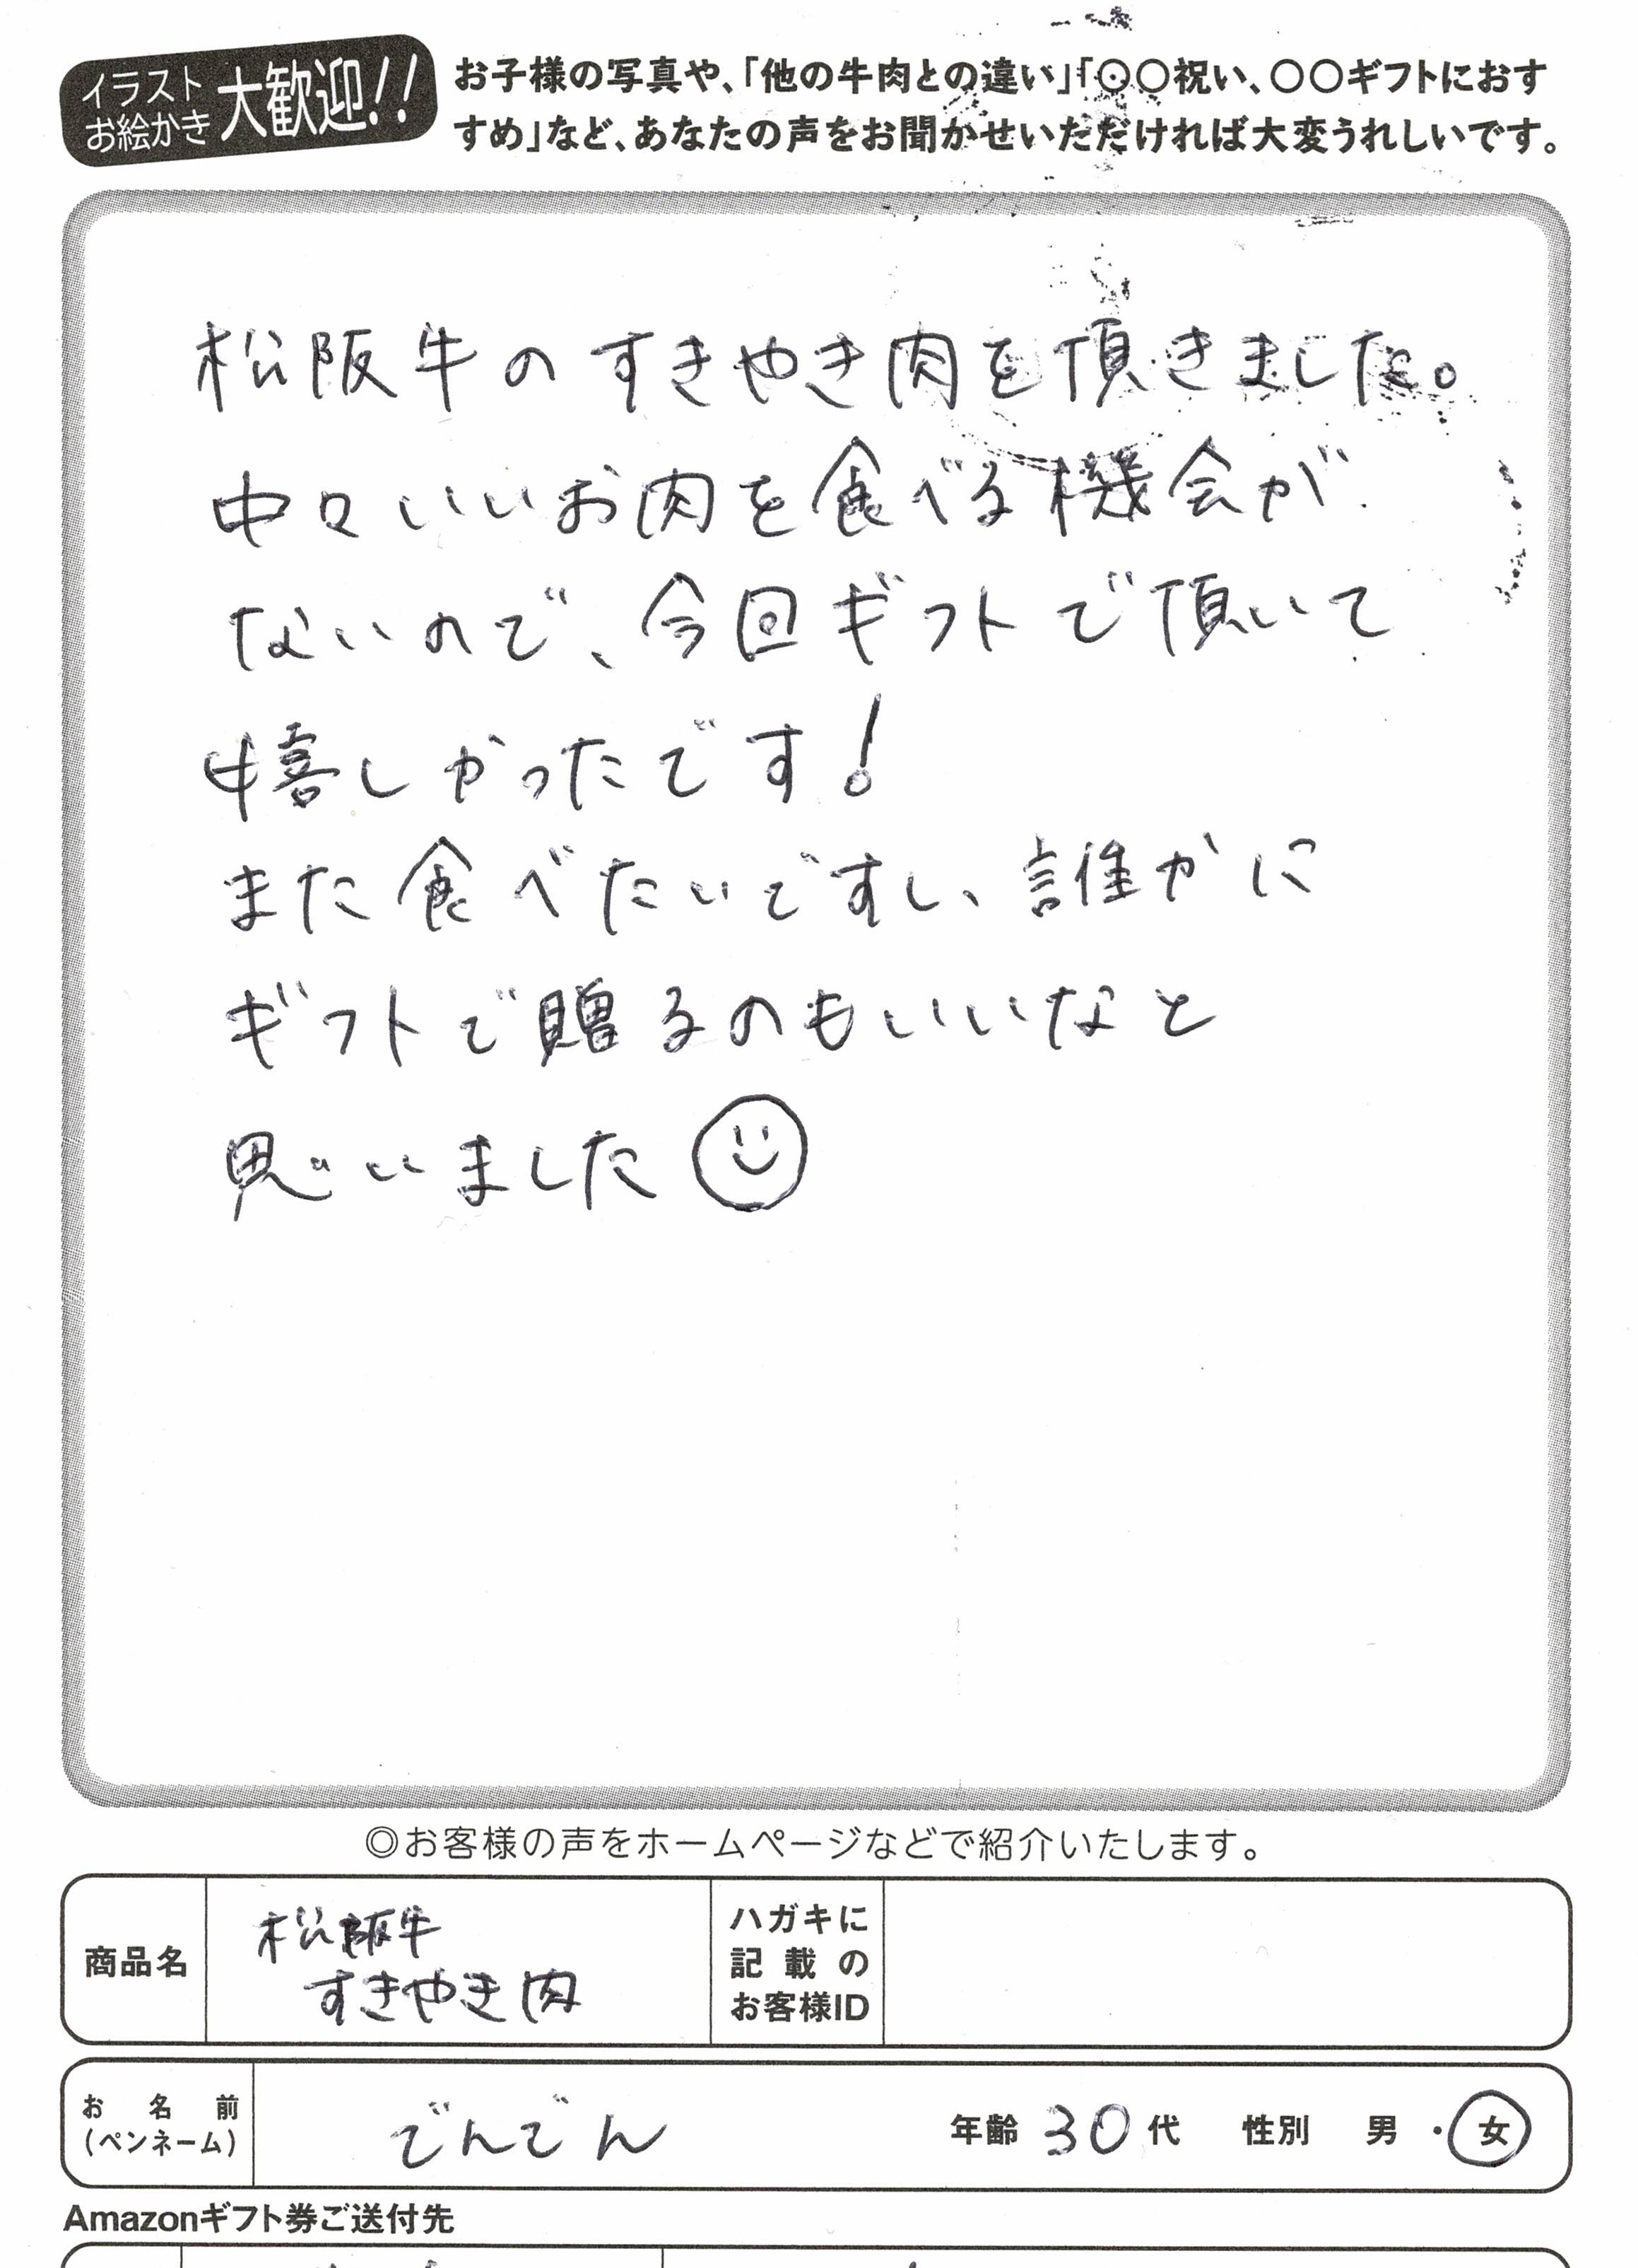 イラスト
お絵かき
大歓迎!!
お子様の写真や、「他の牛肉との違い」「○○祝い、○○ギフトにおす
すめ」など、あなたの声をお聞かせいただければ大変うれしいです。
松阪牛のすきやき肉を頂きました。
中々いいお肉を食べる機会が
ないので、今回ギフトで頂いて
嬉しかったです!
また食べたいですし、誰かに
ギフトで贈るのもいいなと
思いました
◎お客様の声をホームページなどで紹介いたします。
商品名
松阪牛
すきやき肉
ハガキに
記載の
お客様ID
お名前
(ペンネーム)
でんでん
年齢 30代 性別 男・女
Amazonギフト券ご送付先